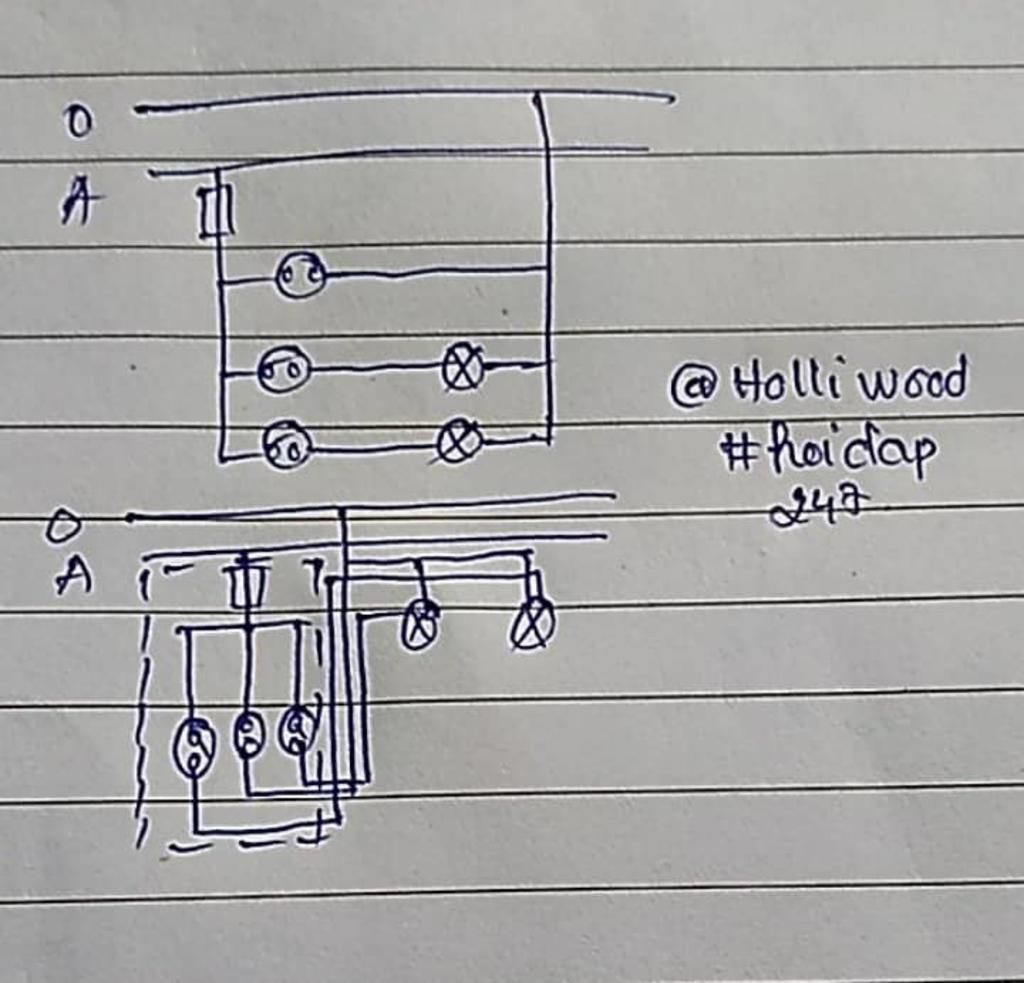 O
A
@Holliwood
#hoidap
247
O
A